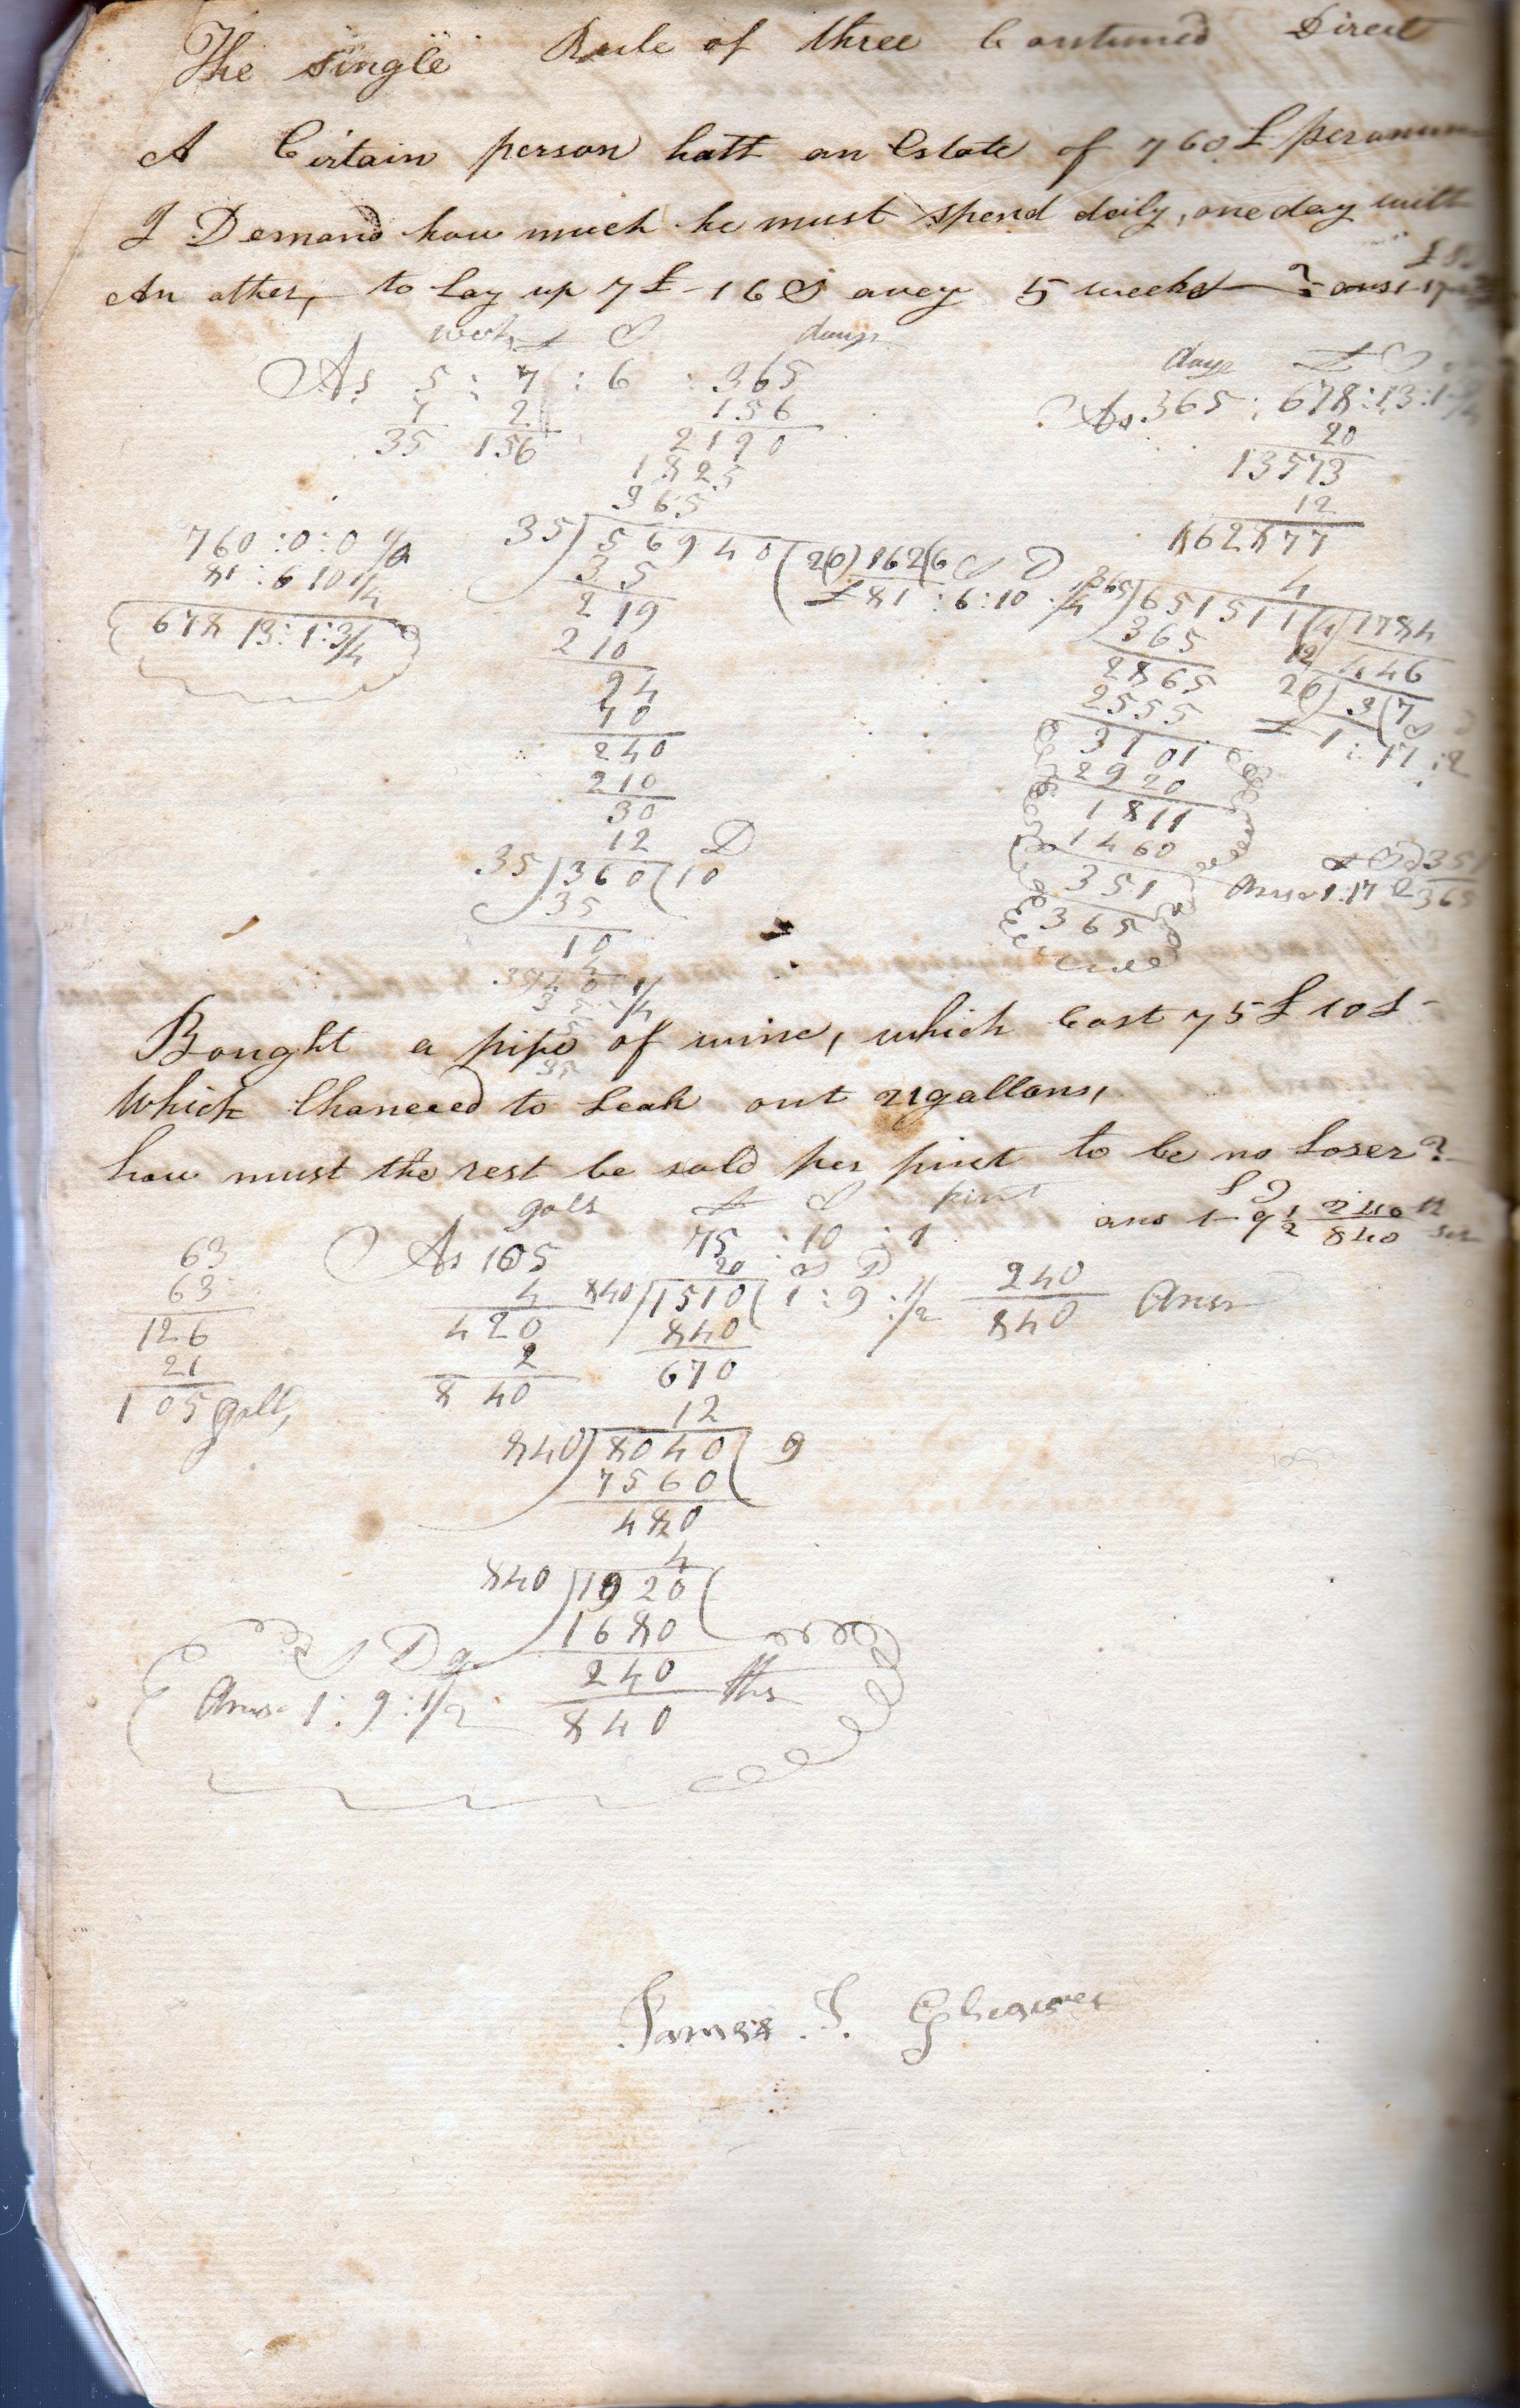 The single Rule of three Contuned Direct
A Cirtain person hatt an Estate of 760£ peranum
I Demand how much he must spend daily, one day with
An other, to Lay up 7£-16S avey 5 weeks ?
weeks £ S days
As 5 : 7 : 6 : 365
7 2 156
35 156 2190
1825
365
35) 56940 (20)162(6 S D
£81 : 6:10 1/4
35
219
210
94
70
240
210
30
12 D
35) 360 (10
35
10
4
35 40 1/4
35
5
35
760 :0:0
81 :6 10 1/4
678 13:1:3/4
days £ S
As 365 : 678:13:1
20
13573
12
162877
4
365) 651511 (4) 1784
365 12 446
2865 20) 3(7
2555 £ 1 : 17 :2
3101
2920
1811
1460
351
365
£ S D 351
Answ 1:17 2 365
Bought a pipe of wine, which Cost 75£ 10S-
Which Chaneced to Leak out 21gallons,
how must the rest be sold per pint to be no Loser?
S D
ans 1-9 1/2 240/840
63
63
126
21
105 gall,
galls £ S pint
As 105 75 :10 :1
4 20 S D
420 840) 1510 ( 1 : 9 : 1/2 240/840 Answ
2 840
840 670
12
840) 8040 ( 9
7560
480
4
840) 1920 (
1680
240 ths
840
S D q
Answ 1 : 9 :1/2
James J.